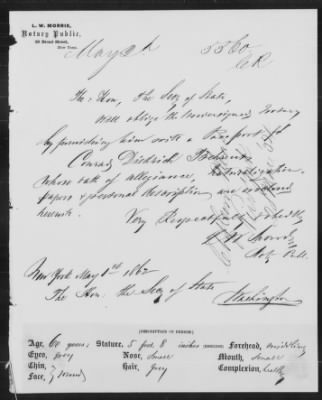 L. W. MORRIS,
Notary Public,
Broad Street,
New York.
May
The Hon. The Secy of State,
Will oblige the undersigned Notary
by furnishing him with a Passport for
Conrad Diedrich
whose oath of allegiance, Naturalization
papers & personal description are enclosed
herewith.
Very Respectfully
L W Morris
Not. Pub.
New York May 1st 1862
The Hon. the Secy of State
Washington
[DESCRIPTION OF PERSON.]
Age, 60 years; Stature, 5 feet 8 inches Forehead, middling
Eyes, grey Nose, small Mouth, small
Chin, Hair, Grey Complexion,
Face, round